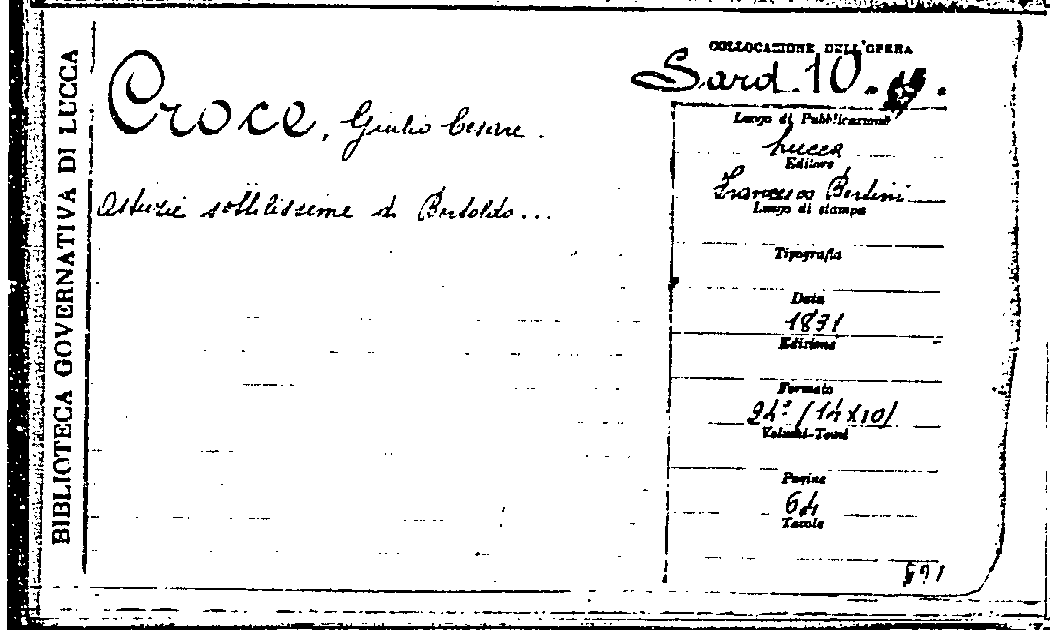 BIBLIOTECA GOVERNATIVA DI LUCCA
Croce, Giulio Cesare.
Astuzie sottilissime di Bertoldo...
COLLOCAZIONE DELL'OPERA
Sard. 10.
Luogo di Pubblicazione
Lucca
Editore
Francesco Bertini
Luogo di stampa
Tipografia
Data
1831
Edizione
Formato
24° (14x10)
Volumi-Tomi
Pagine
64
Tavole